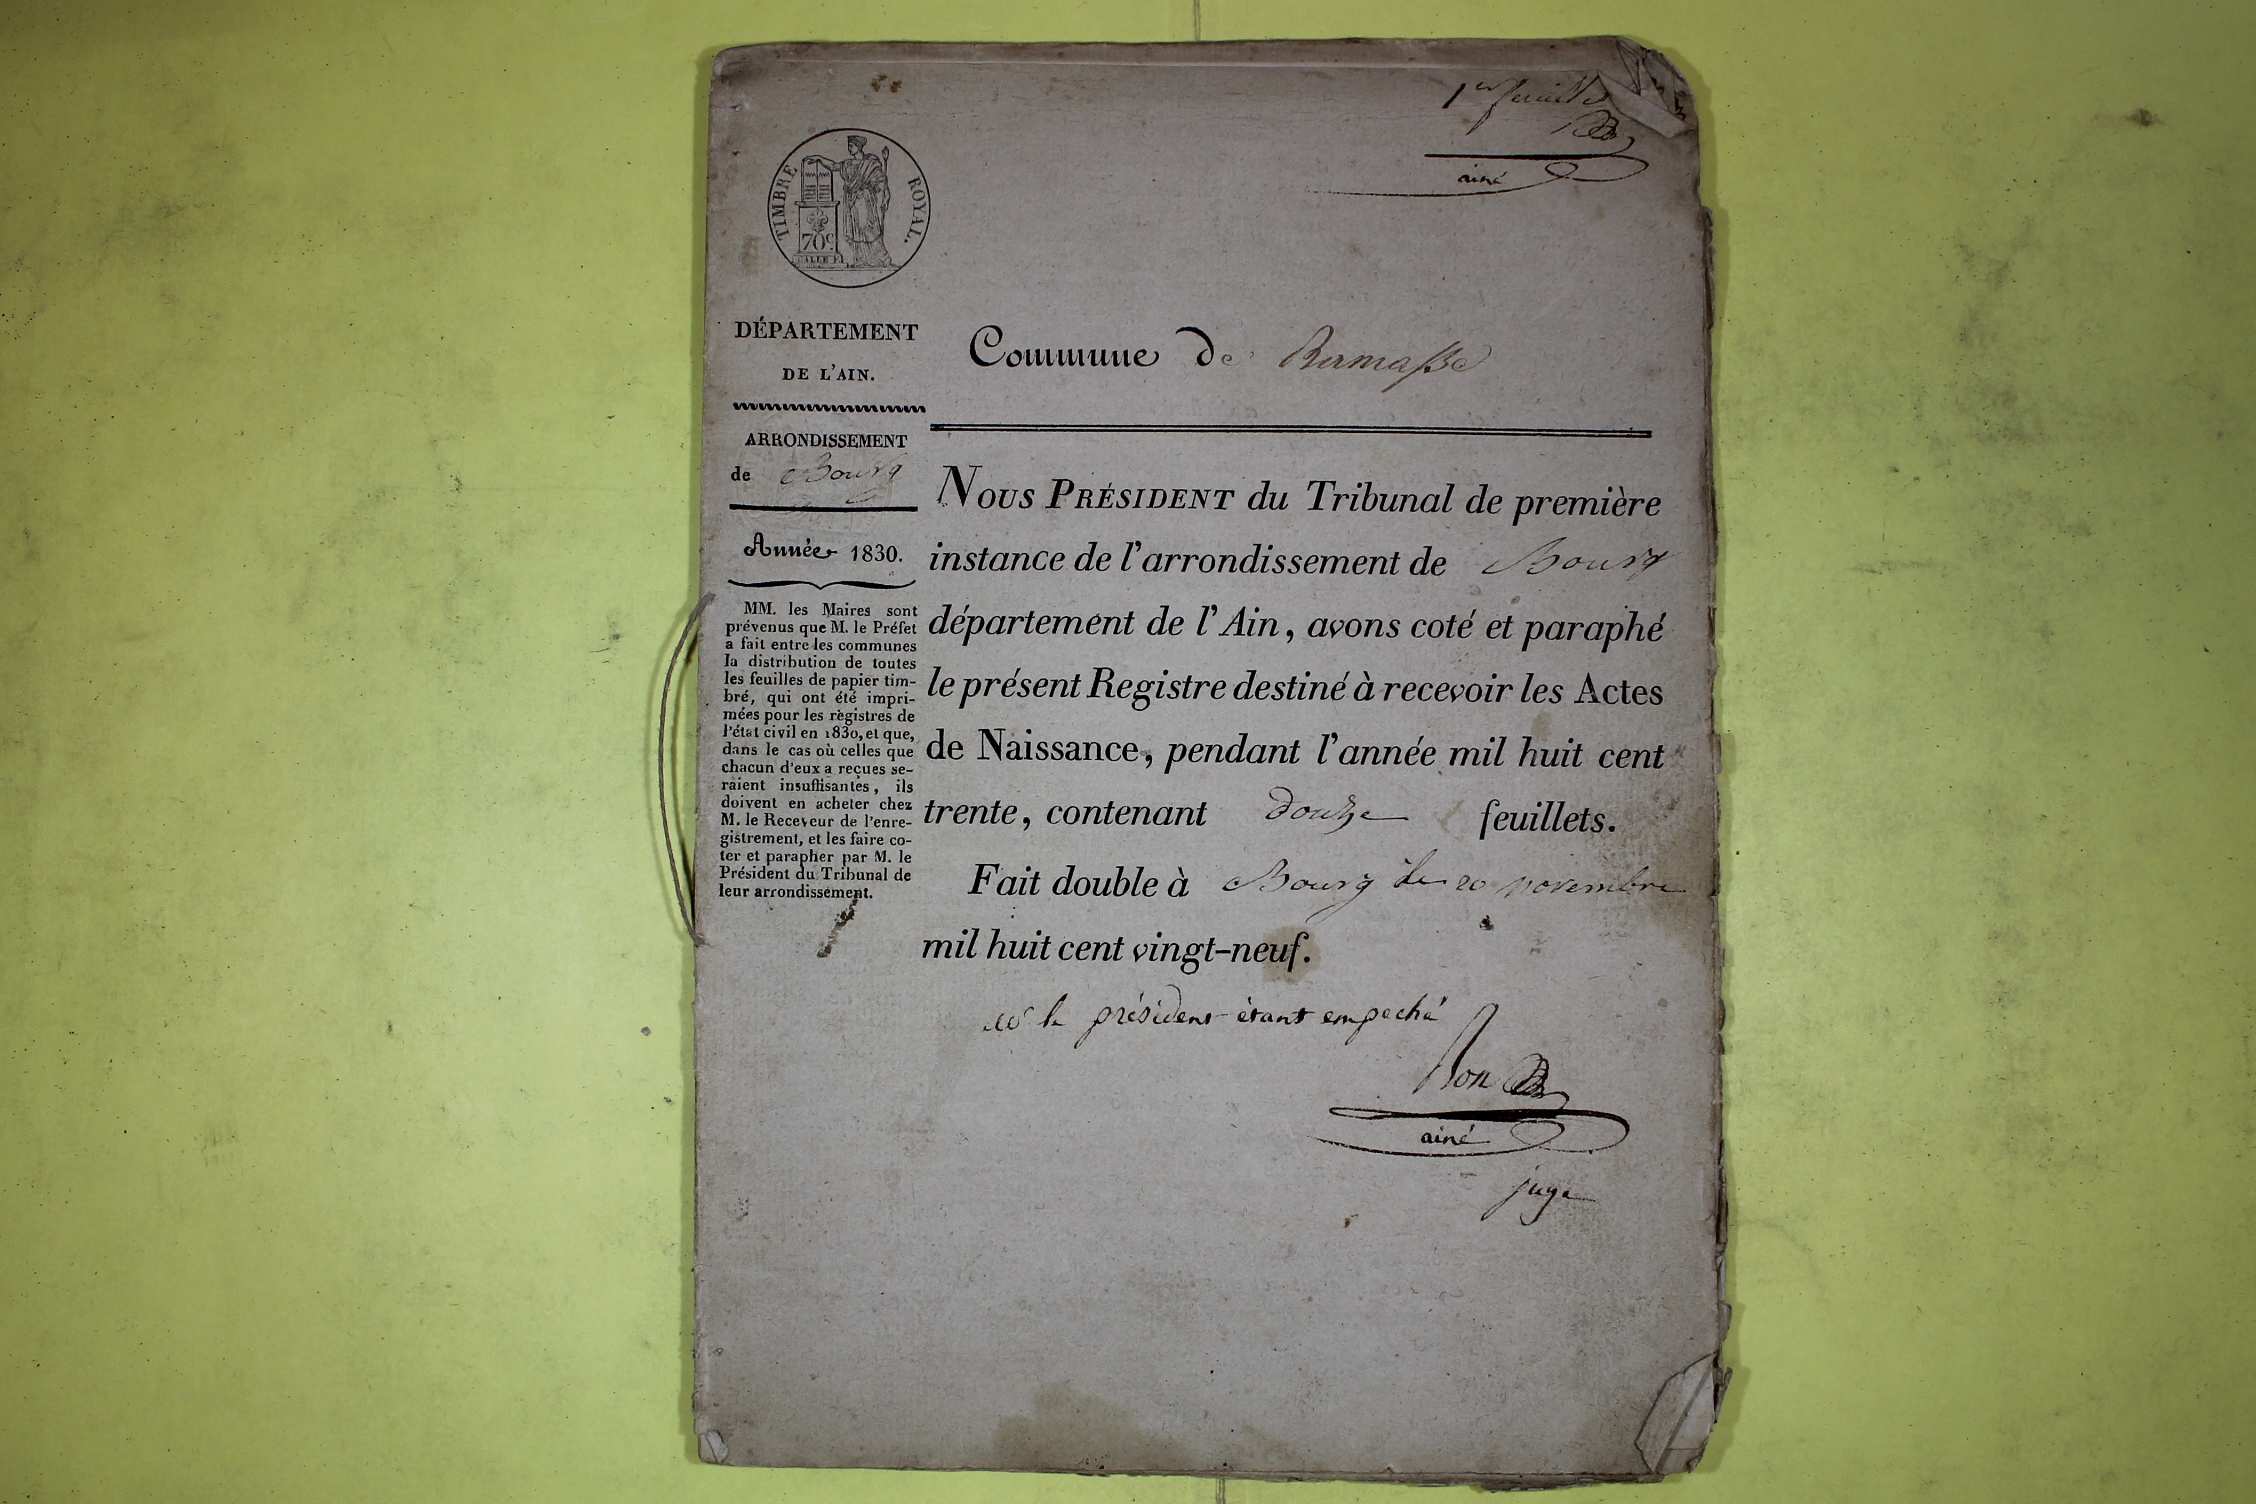 1er feuillet
ainé
TIMBRE ROYAL.
70c
DÉPARTEMENT
DE L'AIN.
ARRONDISSEMENT
de Bourg
Année 1830.
MM. les Maires sont
prévenus que M. le Préfet
a fait entre les communes
la distribution de toutes
les feuilles de papier tim-
bré, qui ont été impri-
mées pour les règistres de
l'état civil en 1830, et que,
dans le cas où celles que
chacun d'eux a reçues se-
raient insuffisantes, ils
doivent en acheter chez
M. le Receveur de l'enre-
gistrement, et les faire co-
ter et parapher par M. le
Président du Tribunal de
leur arrondissement.
Commune de
NOUS PRÉSIDENT du Tribunal de première
instance de l'arrondissement de Bourg
département de l'Ain, avons coté et paraphé
le présent Registre destiné à recevoir les Actes
de Naissance, pendant l'année mil huit cent
trente, contenant douze feuillets.
Fait double à Bourg le 20 novembre
mil huit cent vingt-neuf.
le président étant empeché
ainé
juge